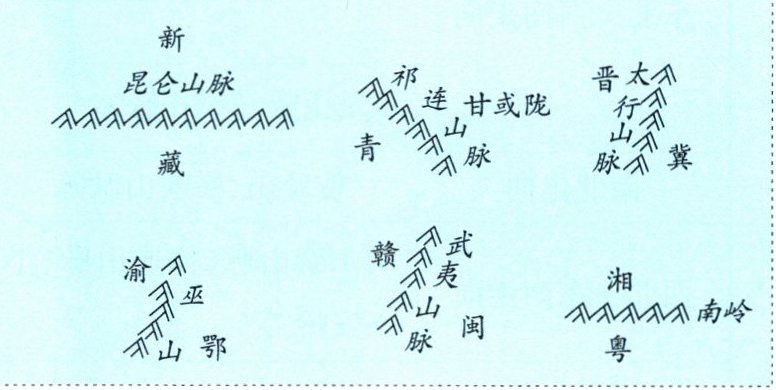 新
昆仑山脉
藏
祁连山脉
甘或陇
青
晋
太行山脉
冀
渝
巫山
鄂
赣
武夷山脉
闽
湘
南岭
粤